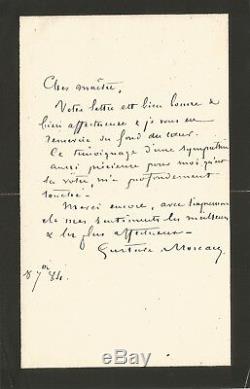 Cher maître,
Votre lettre est bien bonne &
bien affectueuse & je vous en
remercie du fond du cœur.
Ce témoignage d'une sympathie
aussi précieuse pour moi qu'est
la vôtre, m'a profondément
touché.
Merci encore, avec l'expression
de mes sentiments les meilleurs
& les plus affectueux.
Gustave Moreau
8 7bre 84.